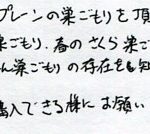 プレーンの巣ごもりを頂
巣ごもり、春のさくら巣ご
ん巣ごもりの存在を知
購入できる様にお願い